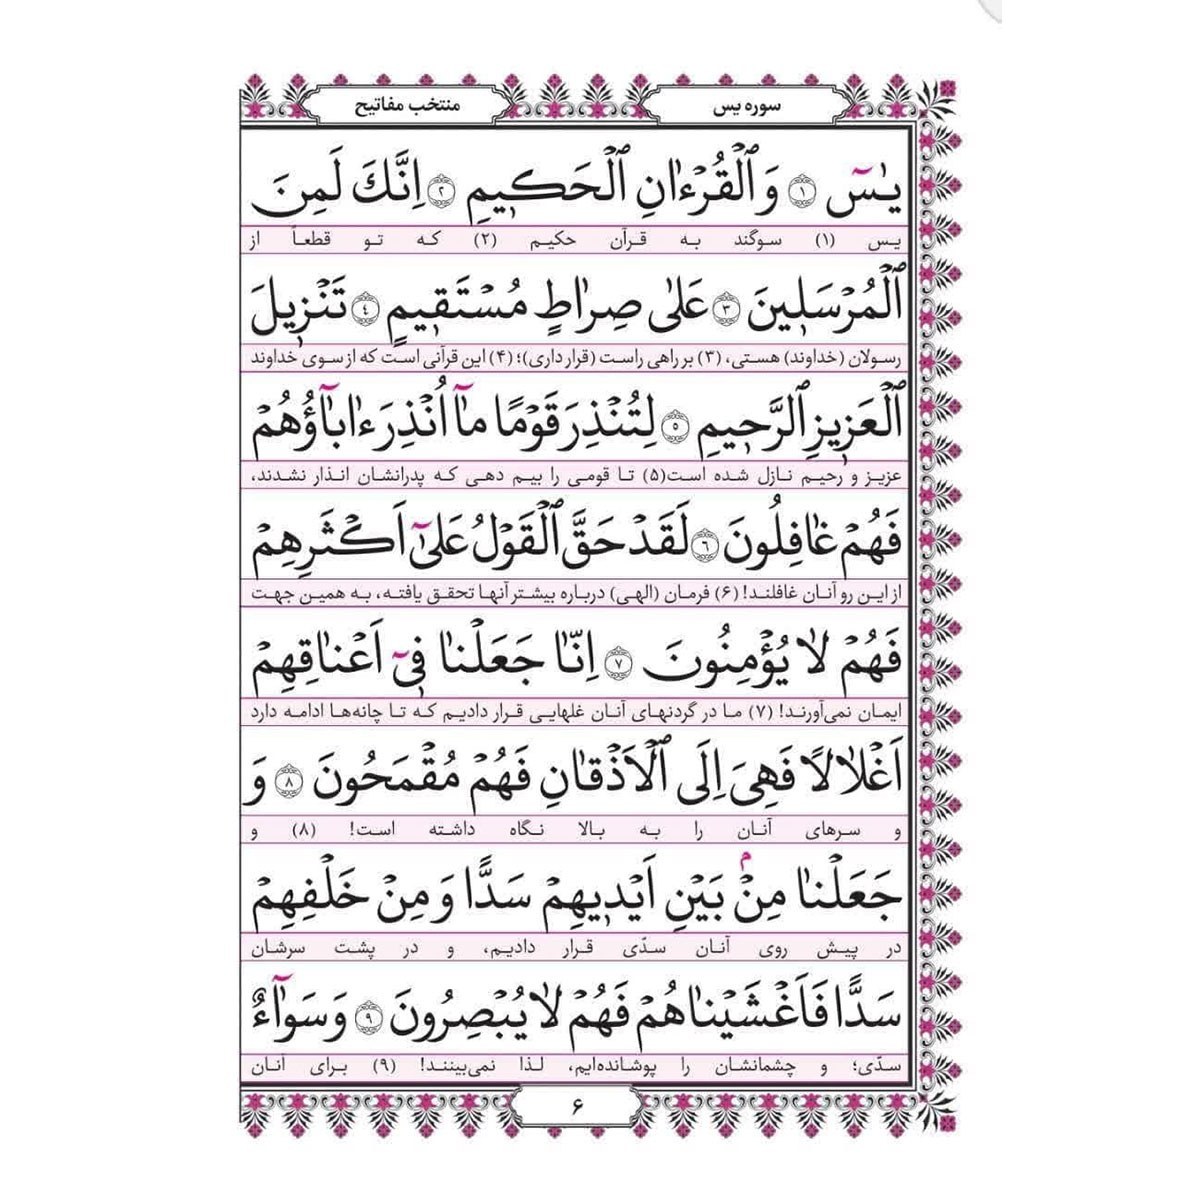 سوره یس
منتخب مفاتیح
یٰسٓ ﴿۱﴾ وَ الْقُرْءٰانِ الْحَکیمِ ﴿۲﴾ اِنَّکَ لَمِنَ
یس (۱) سوگند به قرآن حکیم (۲) که تو قطعاً از
الْمُرْسَلینَ ﴿۳﴾ عَلیٰ صِرٰاطٍ مُسْتَقیمٍ ﴿۴﴾ تَنْزیلَ
رسولان (خداوند) هستی، (۳) بر راهی راست (قرار داری)؛ (۴) این قرآنی است که از سوی خداوند
الْعَزیزِ الرَّحیمِ ﴿۵﴾ لِتُنْذِرَ قَوْمًا مٰٓا اُنْذِرَ ءٰابٰٓاؤُهُمْ
عزیز و رحیم نازل شده است(۵) تا قومی را بیم دهی که پدرانشان انذار نشدند،
فَهُمْ غٰافِلُونَ ﴿۶﴾ لَقَدْ حَقَّ الْقَوْلُ عَلیٰٓ اَکْثَرِهِمْ
از این رو آنان غافلند! (۶) فرمان (الهی) درباره بیشتر آنها تحقق یافته، به همین جهت
فَهُمْ لٰا یُؤْمِنُونَ ﴿۷﴾ اِنّٰا جَعَلْنٰا فیٓ اَعْنٰاقِهِمْ
ایمان نمی‌آورند! (۷) ما در گردنهای آنان غلهایی قرار دادیم که تا چانه‌ها ادامه دارد
اَغْلٰالًا فَهِیَ اِلَی الْاَذْقٰانِ فَهُمْ مُقْمَحُونَ ﴿۸﴾ وَ
و سرهای آنان را به بالا نگاه داشته است! (۸) و
جَعَلْنٰا مِنْۢ بَیْنِ اَیْدیهِمْ سَدًّا وَ مِنْ خَلْفِهِمْ
در پیش روی آنان سدّی قرار دادیم، و در پشت سرشان
سَدًّا فَاَغْشَیْنٰاهُمْ فَهُمْ لٰا یُبْصِرُونَ ﴿۹﴾ وَ سَوٰٓاءٌ
سدّی؛ و چشمانشان را پوشانده‌ایم، لذا نمی‌بینند! (۹) برای آنان
۶